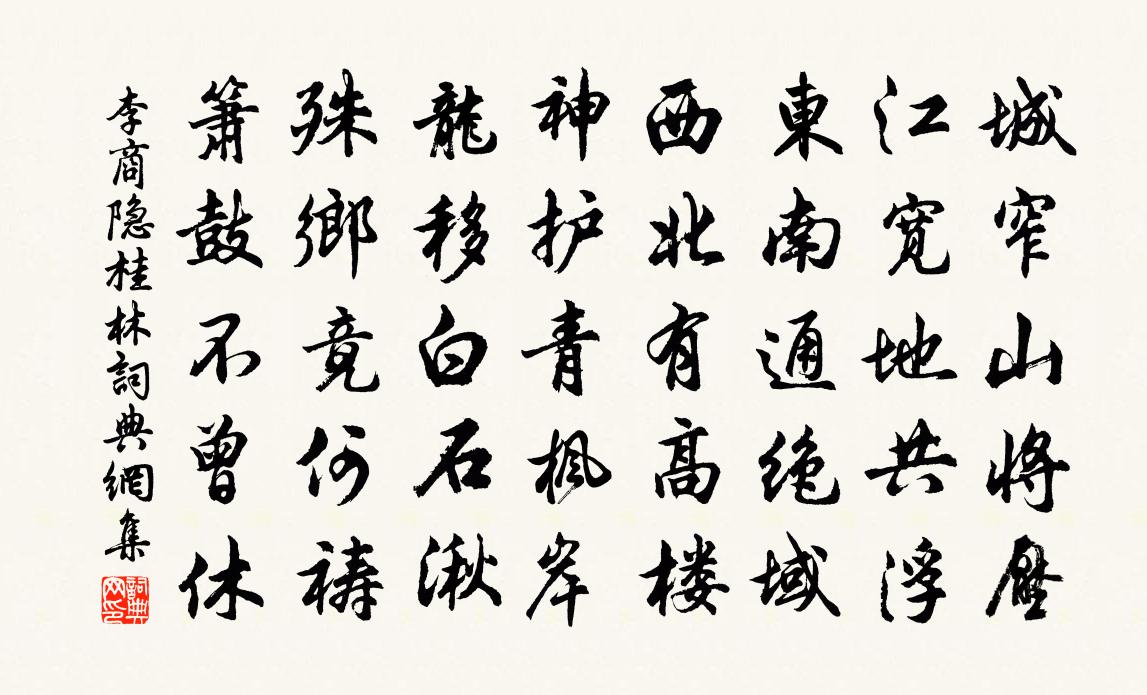 城窄山将壓
江宽地共浮
東南通绝域
西北有高楼
神护青楓岸
龍移白石湫
殊鄉竟何祷
簫鼓不曾休
李商隐桂林詞典網集
詞典网印